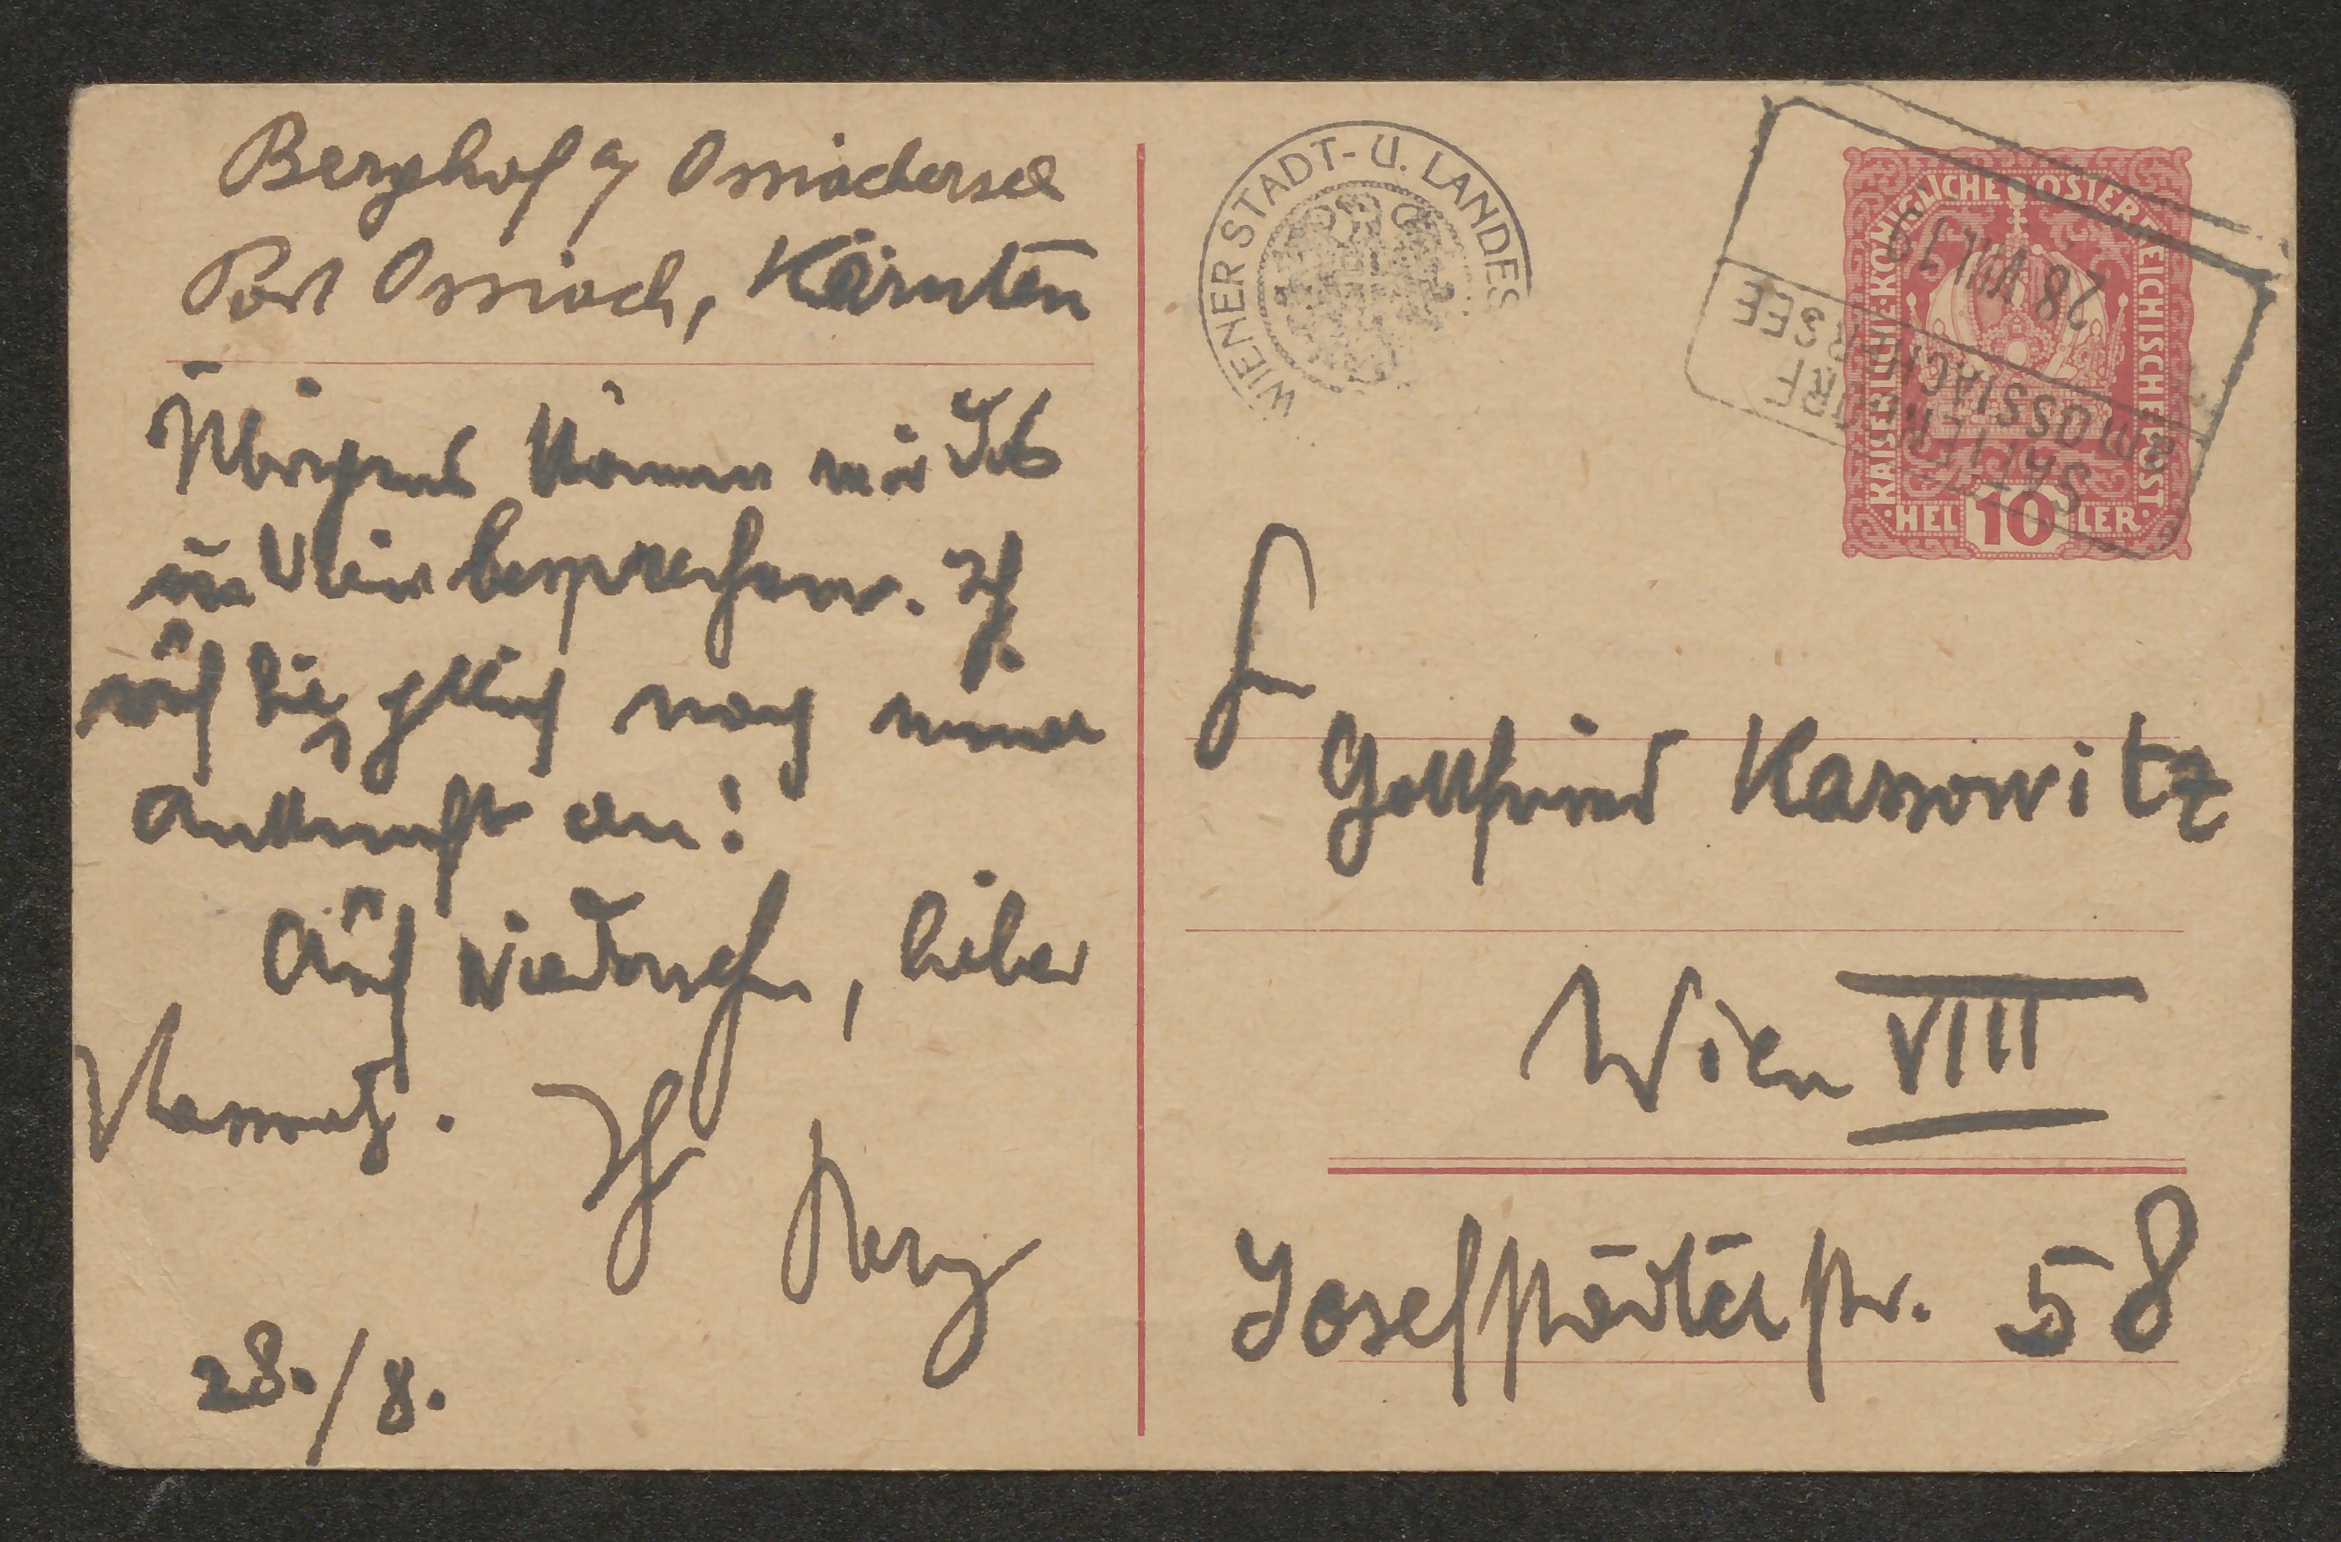 Berghof a/ Ossiachersee
Post Ossiach, Kärnten
Übrigens können wir das
in Wien besprechen. Ich
rufe Sie gleich nach meiner
Ankunft an!
Auf Wiedersehn, lieber
Kassowitz.
Ihr Berg
28./8.
WIENER STADT- U. LANDES
KAISERLICHE KÖNIGLICHE ÖSTERREICHISCHE POST
HELLER
10
28 VIII 19
SATTENDORF
AM OSSIACHERSEE
Hn
Gottfried Kassowitz
Wien VIII
Josefstädterstr. 58